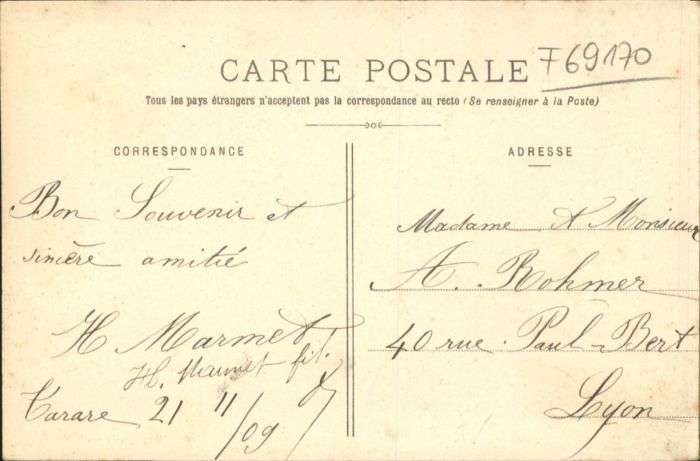 CARTE POSTALE
F69170
Tous les pays étrangers n'acceptent pas la correspondance au recto (Se renseigner à la Poste)
CORRESPONDANCE
Bon Souvenir et
sincère amitié
H Marmet
H. Marmet fils
Tarare 21 11/09
ADRESSE
Madame & Monsieur
A. Rohmer
40 rue Paul-Bert
Lyon